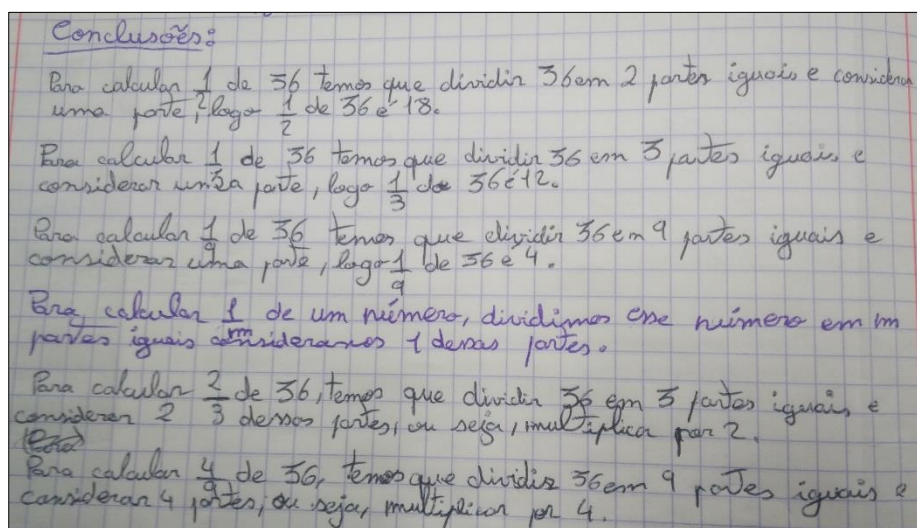 Conclusões:
Para calcular 1/2 de 36 temos que dividir 36 em 2 partes iguais e considerar
uma parte, logo 1/2 de 36 é 18.
Para calcular 1/3 de 36 temos que dividir 36 em 3 partes iguais e
considerar uma parte, logo 1/3 de 36 é 12.
Para calcular 1/9 de 36 temos que dividir 36 em 9 partes iguais e
considerar uma parte, logo 1/9 de 36 é 4.
Para calcular 1/m de um número, dividimos esse número em m
partes iguais consideramos 1 dessas partes.
Para calcular 2/3 de 36, temos que dividir 36 em 3 partes iguais e
considerar 2 dessas partes, ou seja, multiplicar por 2.
Para calcular 4/9 de 36, temos que dividir 36 em 9 partes iguais e
considerar 4 partes, ou seja, multiplicar por 4.